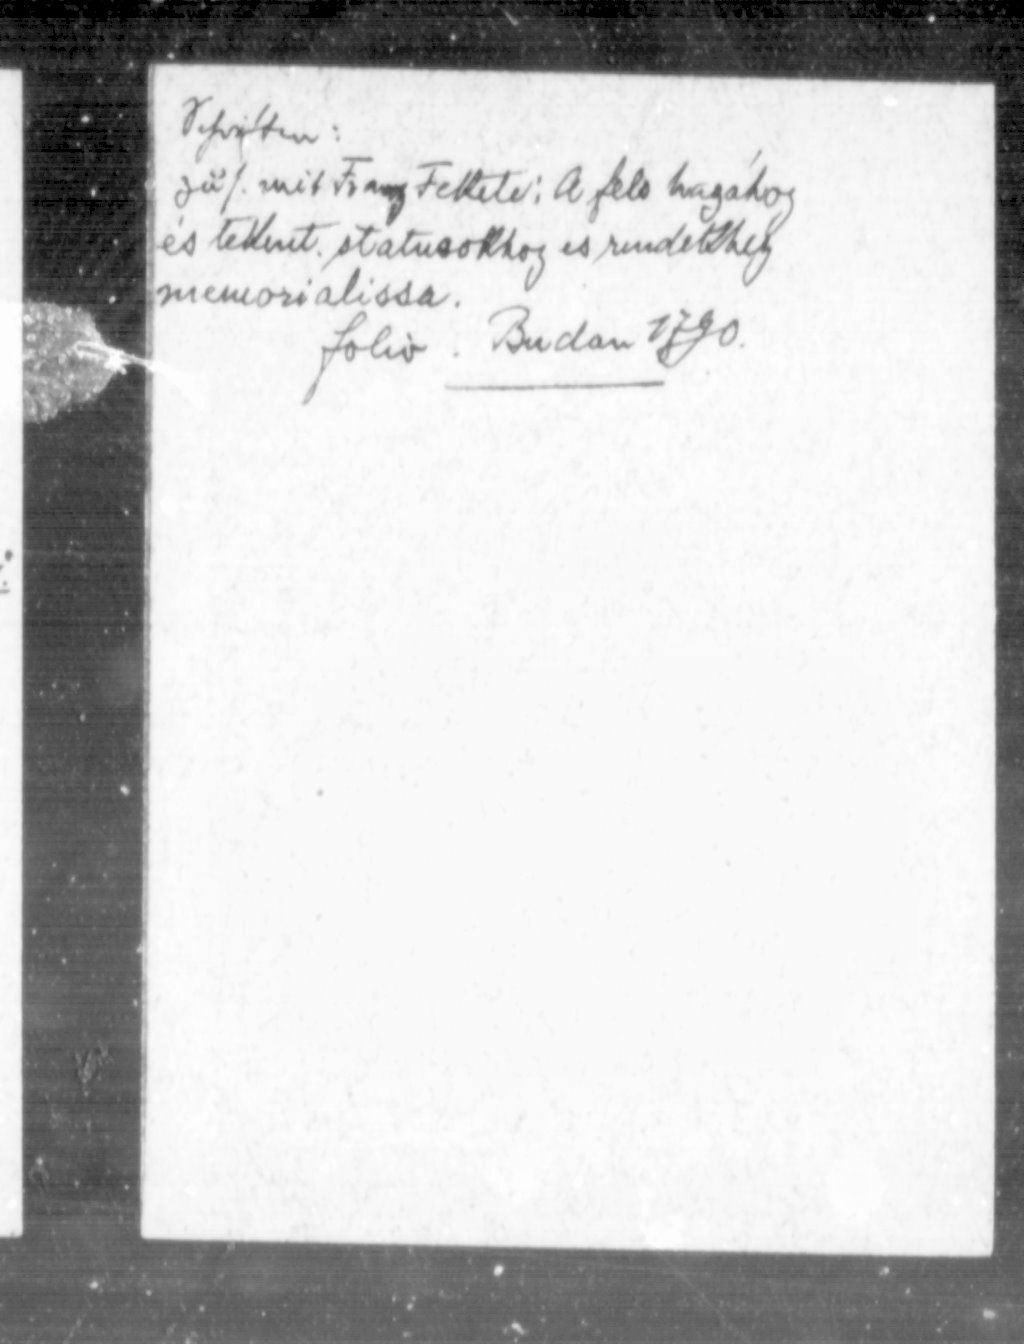 Schriften:
zus. mit Franz Fekete: A fels hazához
és tekint. statusokhoz es rendekhez
memorialissa.
folio. Budan 1790.